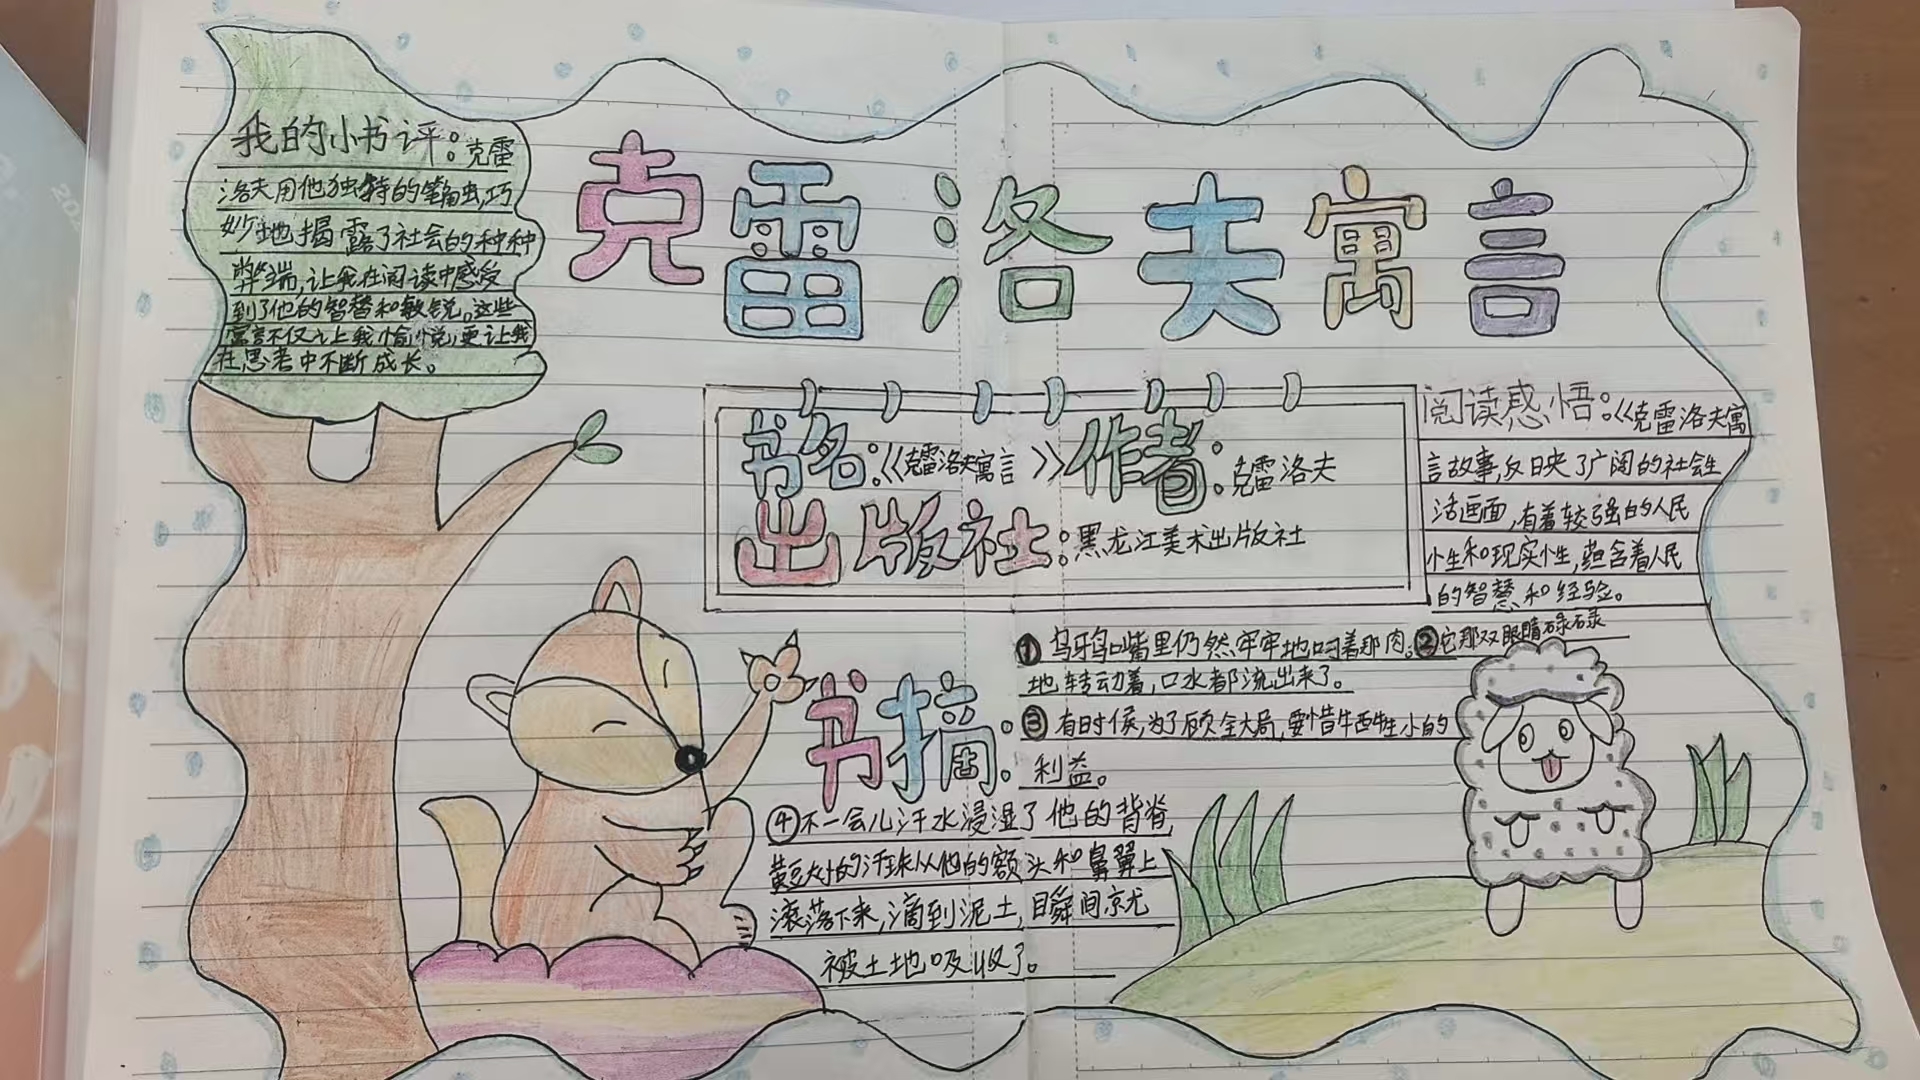 克雷洛夫寓言
我的小书评:克雷
洛夫用他独特的笔触,巧
妙地揭露了社会的种种
弊端,让我在阅读中感受
到了他的智慧和敏锐。这些
寓言不仅让我愉悦,更让我
在思考中不断成长。
书名:《克雷洛夫寓言》作者:克雷洛夫
出版社:黑龙江美术出版社
阅读感悟:《克雷洛夫寓
言故事,反映了广阔的社会生
活画面,有着较强的人民
性和现实性,蕴含着人民
的智慧和经验。
书摘:
①乌鸦嘴里仍然牢牢地叼着那肉。②它那双眼睛碌碌
地转动着,口水都流出来了。
③有时候,为了顾全大局,要惜牺牲小的
利益。
④不一会儿汗水浸湿了他的背脊,
黄豆大的汗珠从他的额头和鼻翼上
滚落下来,滴到泥土,瞬间就
被土地吸收了。